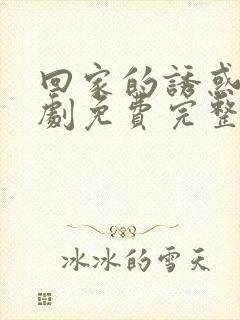 回家的誘惑
劇免費完整
冰冰的雪天